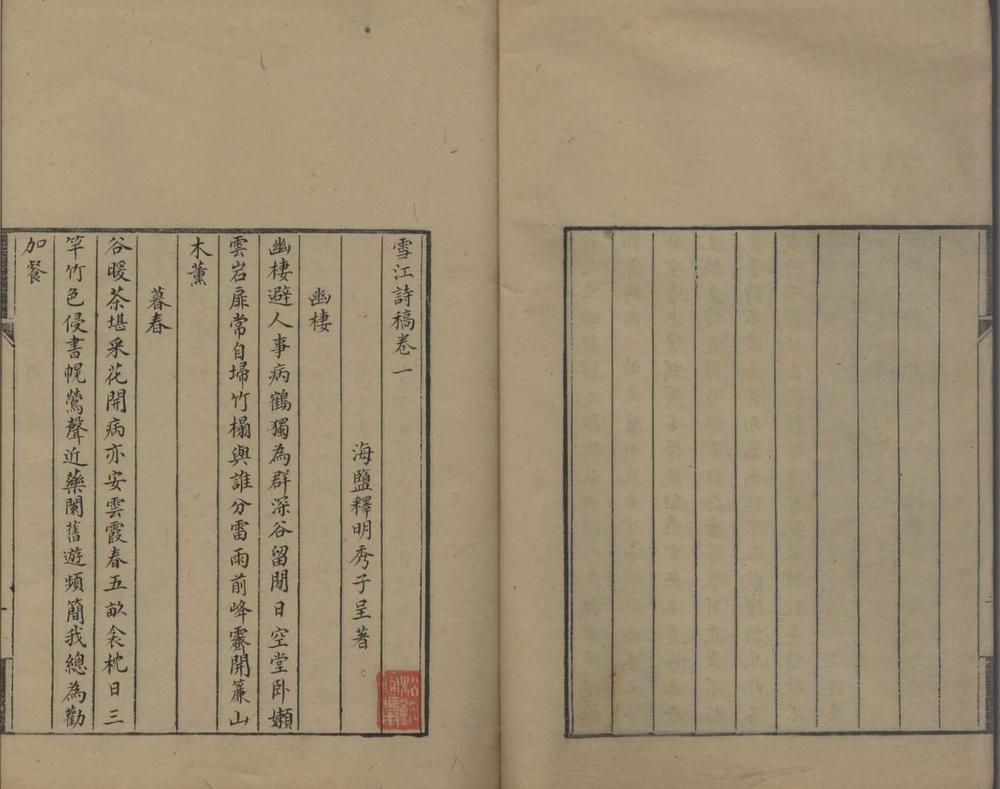 雪江詩稿卷一
海鹽釋明秀子呈著
幽棲
幽棲避人事病鶴獨為群深谷留閒日空堂卧嬾
雲岩扉常自埽竹榻與誰分雷雨前峰霽開簾山
木薰
暮春
谷暖茶堪采花開病亦安雲霞春五畝衾枕日三
竿竹色侵書幌鶯聲近藥闌舊遊頻簡我總為勸
加餐